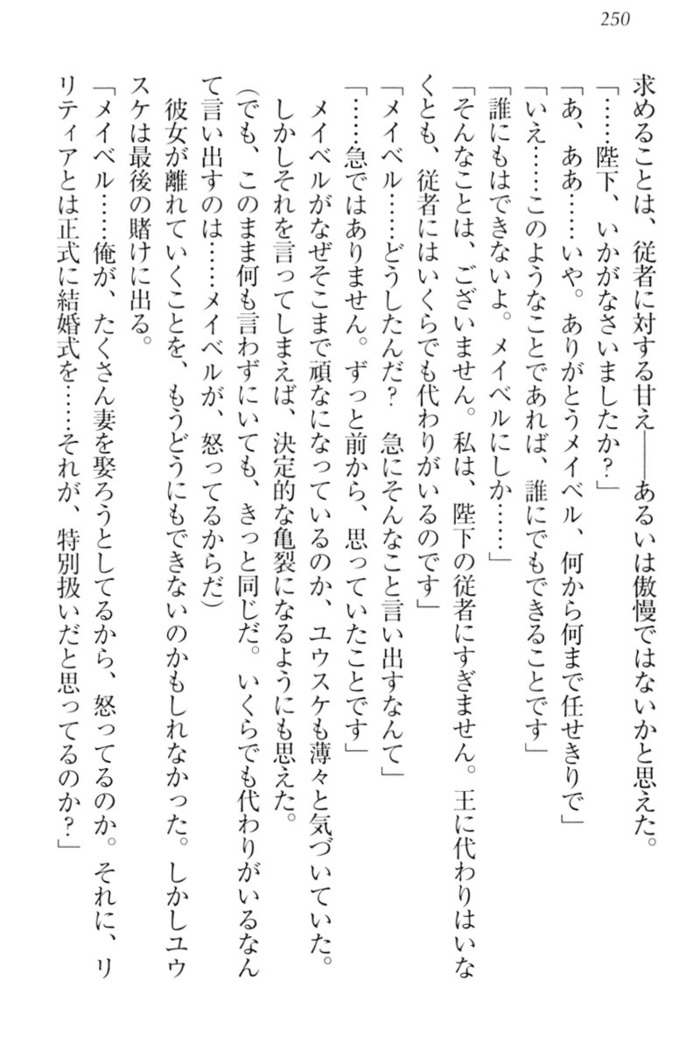 250
求めることは、従者に対する甘え――あるいは傲慢ではないかと思えた。
「……陛下、いかがなさいましたか？」
「あ、ああ……いや。ありがとうメイベル、何から何まで任せきりで」
「いえ……このようなことであれば、誰にでもできることです」
「誰にもはできないよ。メイベルにしか……」
「そんなことは、ございません。私は、陛下の従者にすぎません。王に代わりはいな
くとも、従者にはいくらでも代わりがいるのです」
「メイベル……どうしたんだ？　急にそんなこと言い出すなんて」
「……急ではありません。ずっと前から、思っていたことです」
メイベルがなぜそこまで頑なになっているのか、ユウスケも薄々と気づいていた。
しかしそれを言ってしまえば、決定的な亀裂になるようにも思えた。
（でも、このまま何も言わずにいても、きっと同じだ。いくらでも代わりがいるなん
て言い出すのは……メイベルが、怒ってるからだ）
彼女が離れていくことを、もうどうにもできないのかもしれなかった。しかしユウ
スケは最後の賭けに出る。
「メイベル……俺が、たくさん妻を娶ろうとしてるから、怒ってるのか。それに、リ
リティアとは正式に結婚式を……それが、特別扱いだと思ってるのか？」